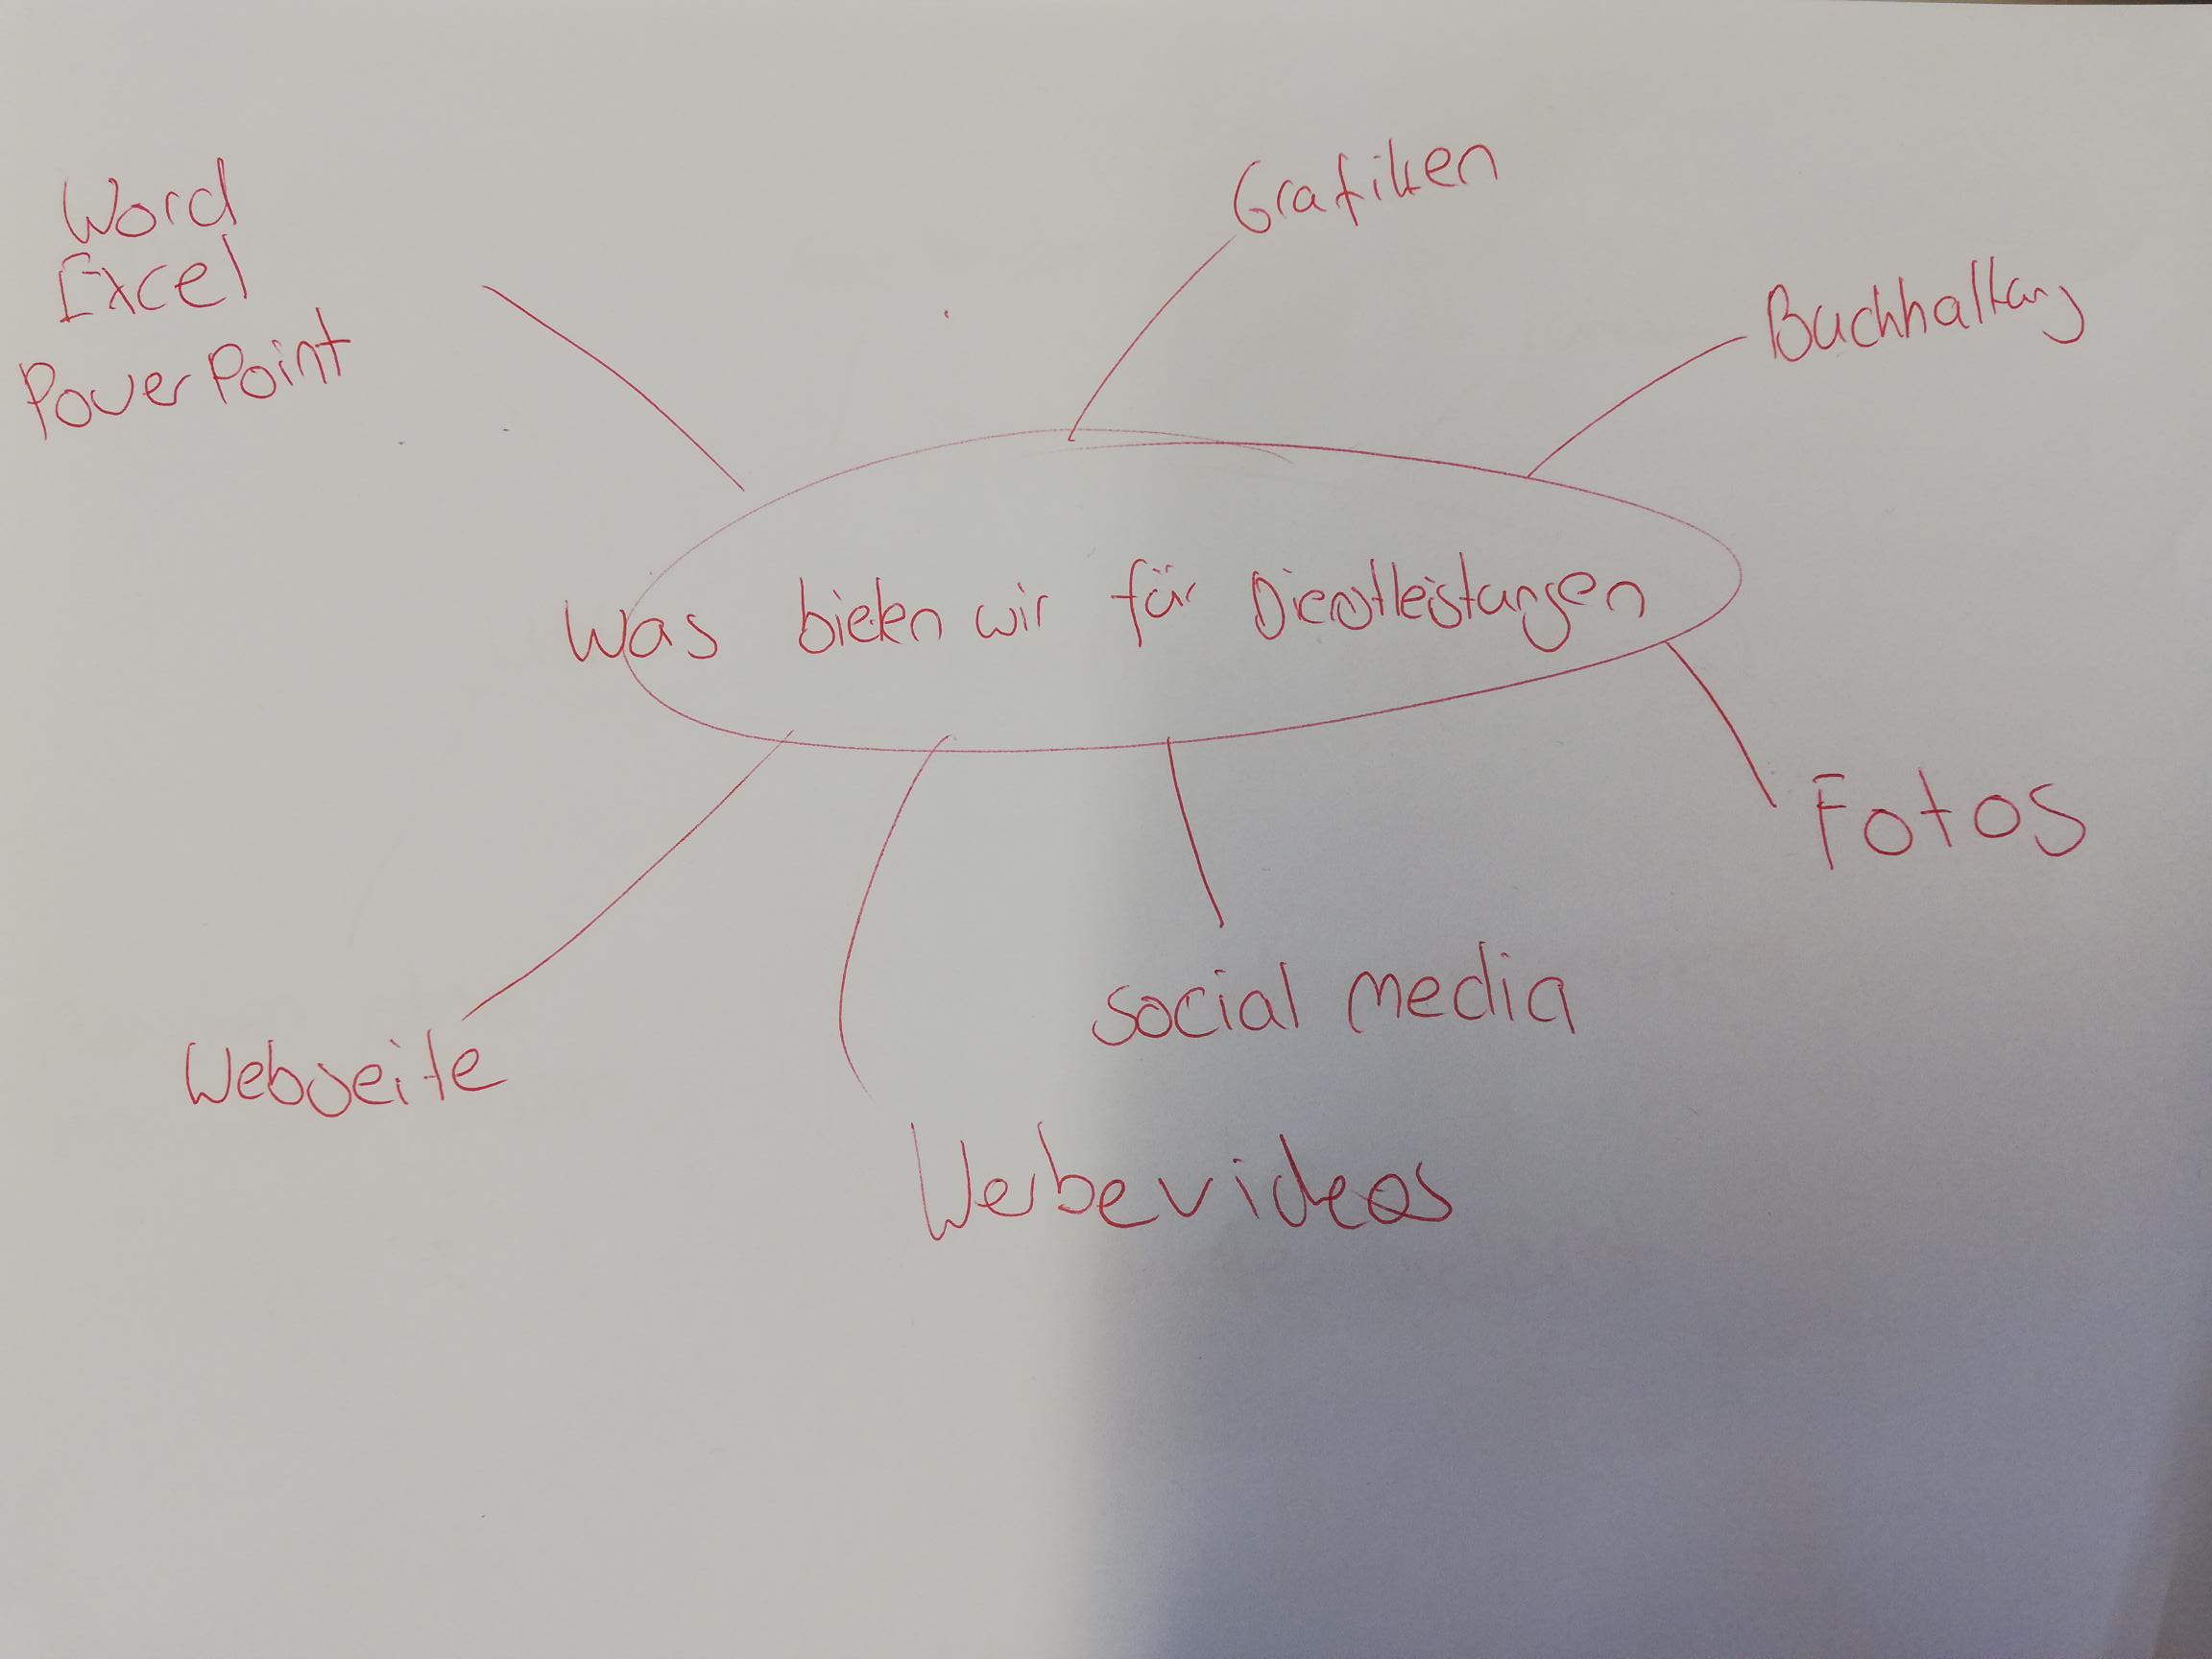 Word
Excel
PowerPoint
Grafiken
Buchhaltung
Was bieten wir für Dienstleistungen
Fotos
social media
Webseite
Werbevideos